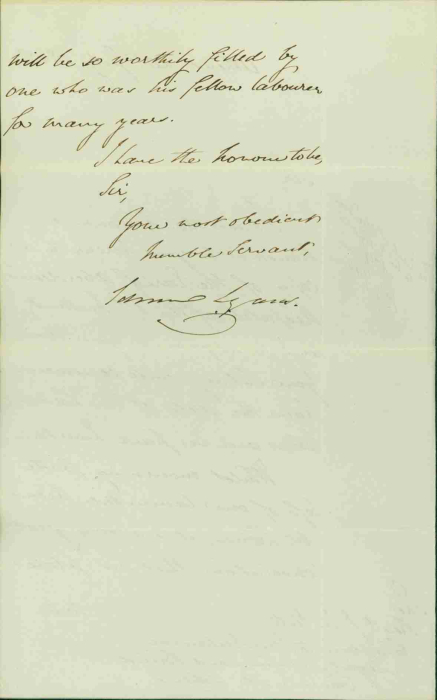 will be so worthily filled by
one who was his fellow labourer
for many years.
I have the honour to be,
Sir,
Your most obedient
humble Servant,